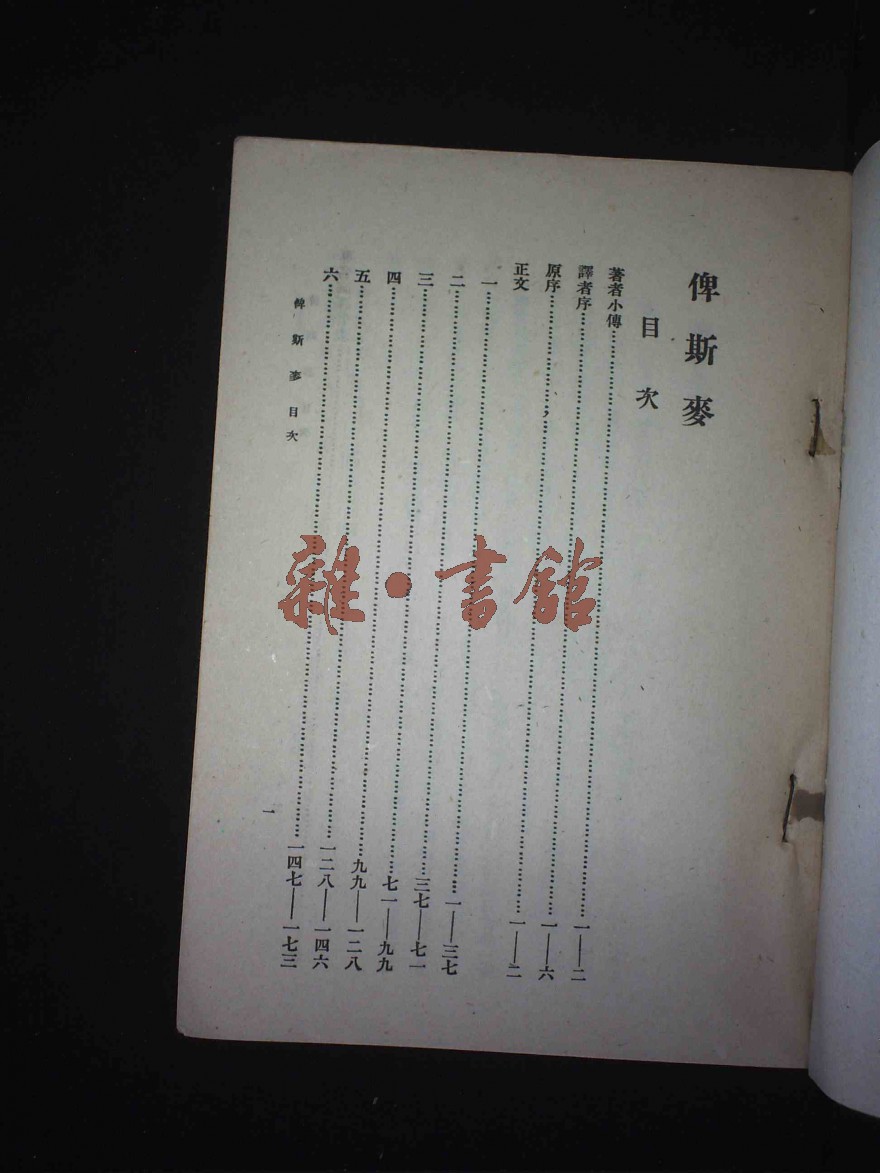 俾斯麥
目次
著者小傳……一——二
譯者序……一——六
原序……一——二
正文
一……一——三七
二……三七——七一
三……七一——九九
四……九九——一二八
五……一二八——一四六
六……一四七——一七三
俾斯麥目次
一
雜·書館